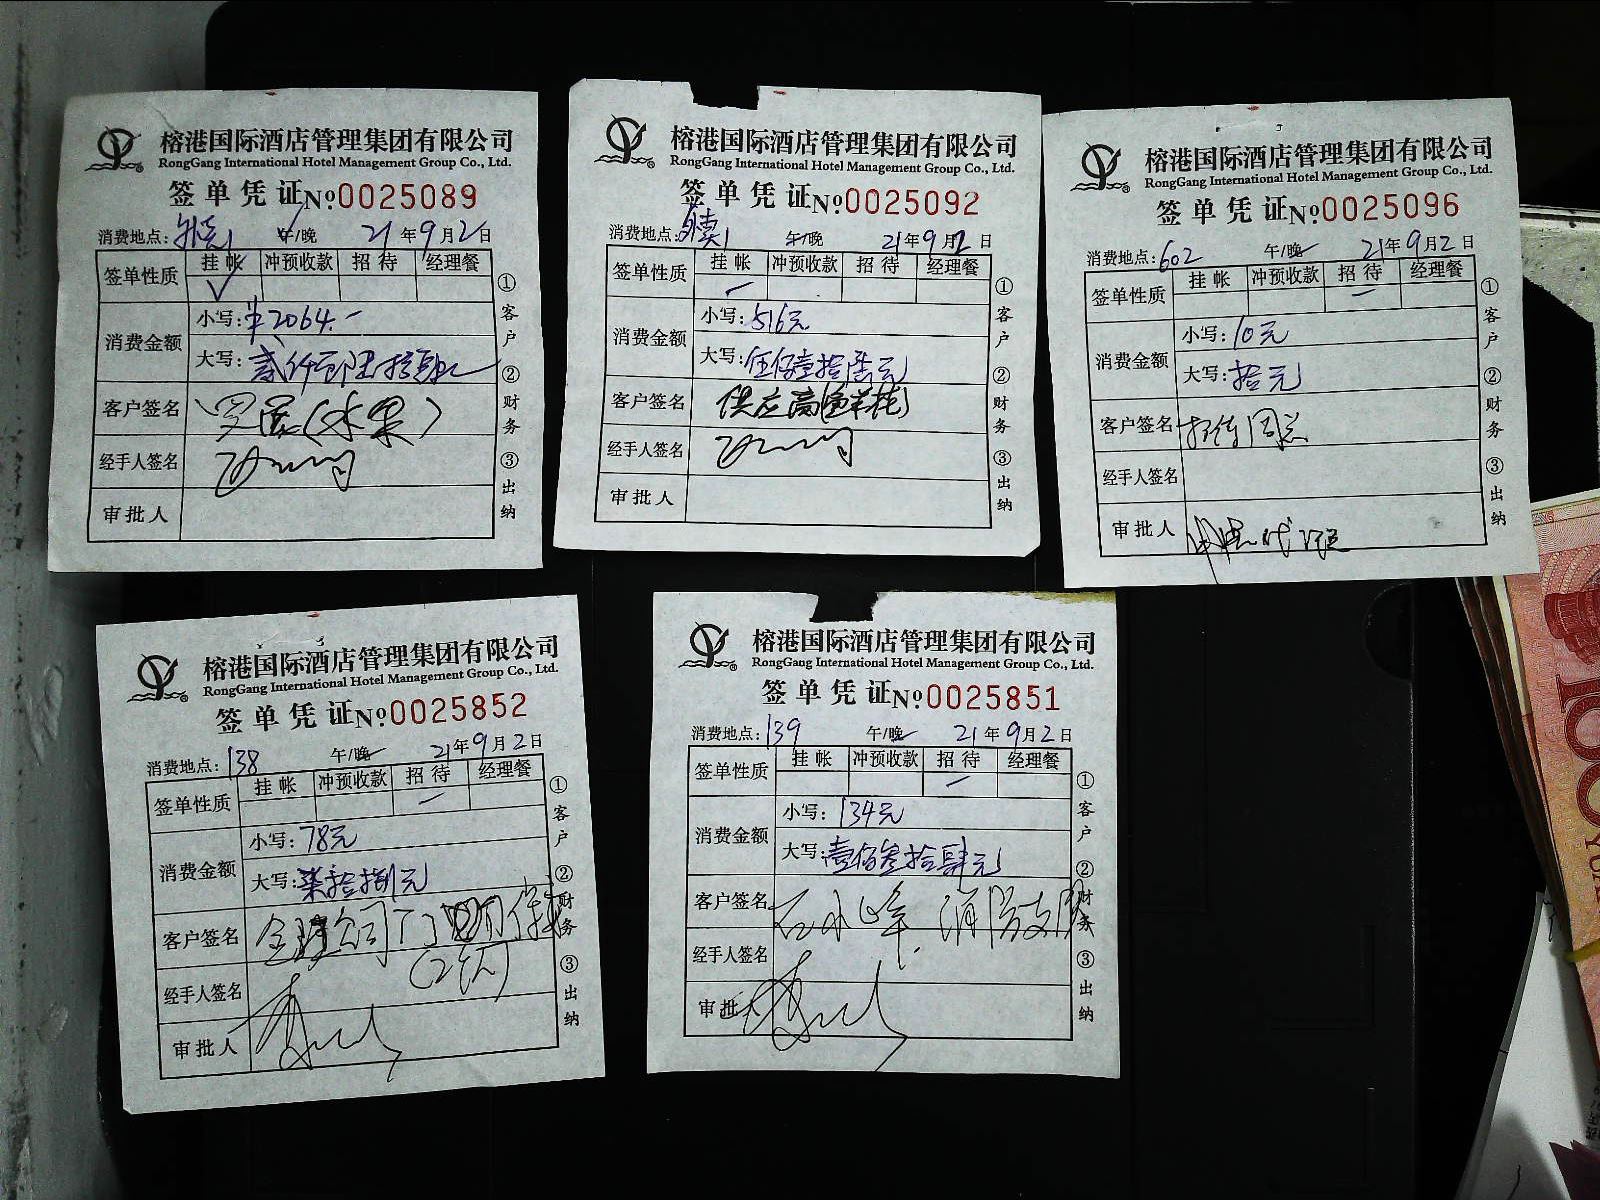 榕港国际酒店管理集团有限公司
RongGang International Hotel Management Group Co., Ltd.
签单凭证 №0025089
消费地点: 午/晚 21年9月2日
签单性质 挂帐 冲预收款 招待 经理餐
✓
消费金额
小写: 2064.-
大写:
客户签名 (水果)
经手人签名
审批人
①客户 ②财务 ③出纳
榕港国际酒店管理集团有限公司
RongGang International Hotel Management Group Co., Ltd.
签单凭证 №0025092
消费地点:外卖 午/晚 21年9月2日
签单性质 挂帐 冲预收款 招待 经理餐
消费金额
小写: 516元
大写: 伍佰壹拾陆元
客户签名 供应商
经手人签名
审批人
①客户 ②财务 ③出纳
榕港国际酒店管理集团有限公司
RongGang International Hotel Management Group Co., Ltd.
签单凭证 №0025096
消费地点:602 午/晚 21年9月2日
签单性质 挂帐 冲预收款 招待 经理餐
消费金额
小写: 10元
大写: 拾元
客户签名
经手人签名
审批人
①客户 ②财务 ③出纳
榕港国际酒店管理集团有限公司
RongGang International Hotel Management Group Co., Ltd.
签单凭证 №0025852
消费地点:138 午/晚 21年9月2日
签单性质 挂帐 冲预收款 招待 经理餐
消费金额
小写: 78元
大写: 柒拾捌元
客户签名 公司
经手人签名
审批人
①客户 ②财务 ③出纳
榕港国际酒店管理集团有限公司
RongGang International Hotel Management Group Co., Ltd.
签单凭证 №0025851
消费地点:139 午/晚 21年9月2日
签单性质 挂帐 冲预收款 招待 经理餐
消费金额
小写: 134元
大写: 壹佰叁拾肆元
客户签名 消防支队
经手人签名
审批人
①客户 ②财务 ③出纳
100